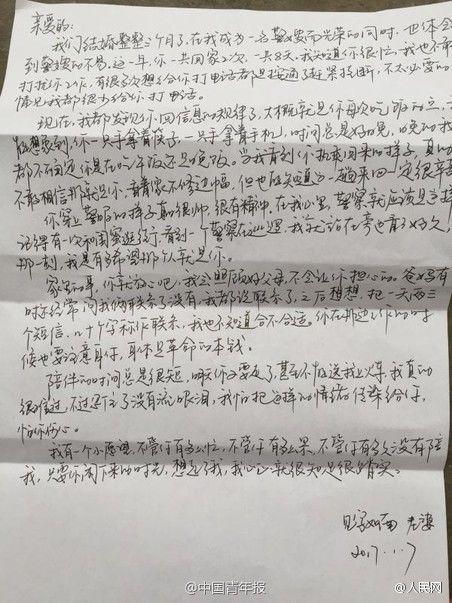 亲爱的:
我们结婚整整三个月了,在我成为一名警嫂而光荣的同时,也体会
到警嫂的不易,这一年,你一共回家2次,一共8天,我知道你很忙,我也不敢
打扰你工作,有很多次想给你打电话都是接通了赶紧挂断,不太必要的
情况我都很少给你打电话。
现在,我都发现你回信息的规律了,大概就是你每次吃饭的点,
能想象到,你一只手拿着筷子,一只手拿着手机,时间总是好的晚,晚的我
都不确定你是在吃午饭还是晚饭。当我看到你执勤回来的样子,真的
不敢相信那就是你,看着你不修边幅,但也能知道这一趟来回一定很辛苦
你穿上警服的样子真的很帅,很有精神,在我心里,警察就应该是这样
记得有一次和闺蜜逛街,看到一个警察在巡逻,我就站在旁边看了好久,
那一刻,我是有多希望那个人就是你。
家里的事,你就放心吧,我会照顾好父母,不会让你担心的。爸妈有
时会经常问我俩联系了没有,我都说联系了,之后想想,把一天两三
个短信,几十个字称作联系,我也不知道合不合适。你在那边工作的时
候也要注意身体,身体是革命的本钱。
陪伴的时间总是很短,明天你又要走了,甚至不能送我上火车,我真的
很难过,不过还是忍了没有流眼泪,我怕把这样的情绪传染给你,
怕你伤心。
我有一个小愿望,不管你有多忙,不管你有多累,不管你有多久没有陪
我,只要你闲下来的时光,想起了我,我心里就很知足很踏实。
见字如面 老婆
2017.1.7
@中国青年报
@人民网